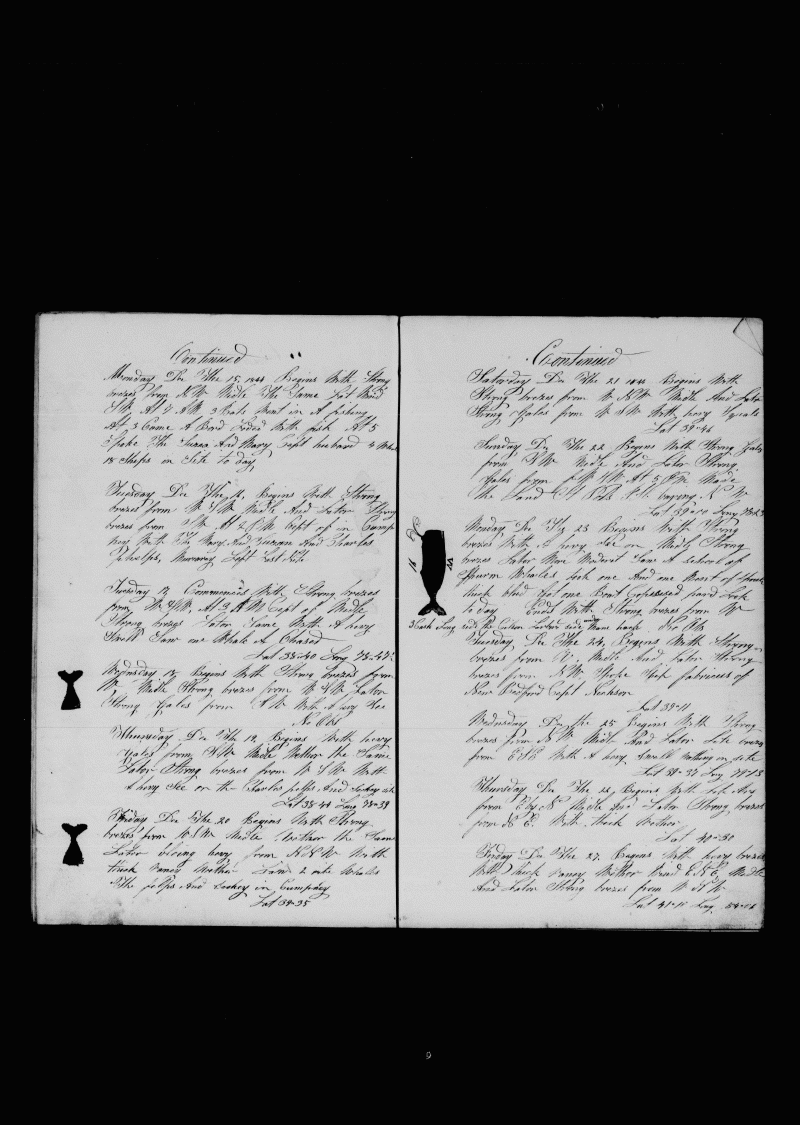 Continued
Monday De The 15 1844 Begins With Strong
brezes from N.W. Midle The Same Lat Wind
S.W. At 7 A.M. 3 Boats Went in A fishing
At 3 Came A Bord Loded With fish At 5
Spoke The Susan And Mary Capt husband 4 Whales
18 Ships in Site to day
Tuesday De The 16 Begins With Strong
brezes from W.S.W. Midle And Lator Strong
brezes from S.W. At 2 P.M. Capt of in Cump
any With The Mary And Susan And Charles
Phelps, Murray Capt
Tuesday 17 Commences With Strong brezes
from W.S.W. At 3 A.M. Capt of Midle
Strong brezes Lator Same With A hevy
Swell Saw one Whale A Chased
Lat 38-40 Long 73-47
Wednsday 18 Begins With Strong brezes from
W. Midle Strong brezes from W.S.W. Lator
Strong Gales from S.W. With A hevy See
No Obs
Thursday De The 19 Begins With hevy
Gales from W.S.W. Midle Wether the Same
Lator Strong brezes from W.S.W. With
A hevy See on the Charles phelps And in site
Lat 38-44 Long 73-39
Friday De The 20 Begins With Strong
brezes from W.S.W. Midle Wether the Same
Lator bloing hevy from N.N.W. With
thick raney Wether Saw 2 rite Whales
The phelps And in Cumpany
Lat 38-35
Continued
Saturday De The 21 1844 Begins With
Strong brezes from W.N.W. Midle And Lator
Strong Gales from W.S.W. With hevy Squals
Lat 39-46
Sunday De The 22 Begins With Strong Gales
from S.W. Midle And Lator Strong
Gales from W.S.W. At 5 P.M. Made
the Land baring N W
Lat 39-10 Long 73-23
Monday De The 23 Begins With Strong
brezes With A hevy See on Midle Strong
brezes Lator More Moderat Saw A School of
Spurm Whales Took one And one Boat
thick blud Got one Boat Capsized
to day Ends With Strong brezes from W
No Obs
Tuesday, De The 24, Begins With Strong
brezes from W. Midle And Lator Strong
brezes from S.W. Spoke Ship fabricus of
New Bedford Capt
Lat 39-11
Wednsday De The 25 Begins With Strong
brezes from N.W. Midle And Lator Lite brezes
from E.S.E. With A hevy Swell nothing in site
Lat 39-37 Long 74-13
Thursday De The 26, Begins With lite Ars
from E by N Midle And Lator Strong brezes
from N.E. With thick Wether
Lat 40-30
Friday De The 27, Begins With hevy brezes
With thick raney Wether Wind E.N.E. Midle
And Lator Strong brezes from W.N.W.
Lat 41-10 Long
9